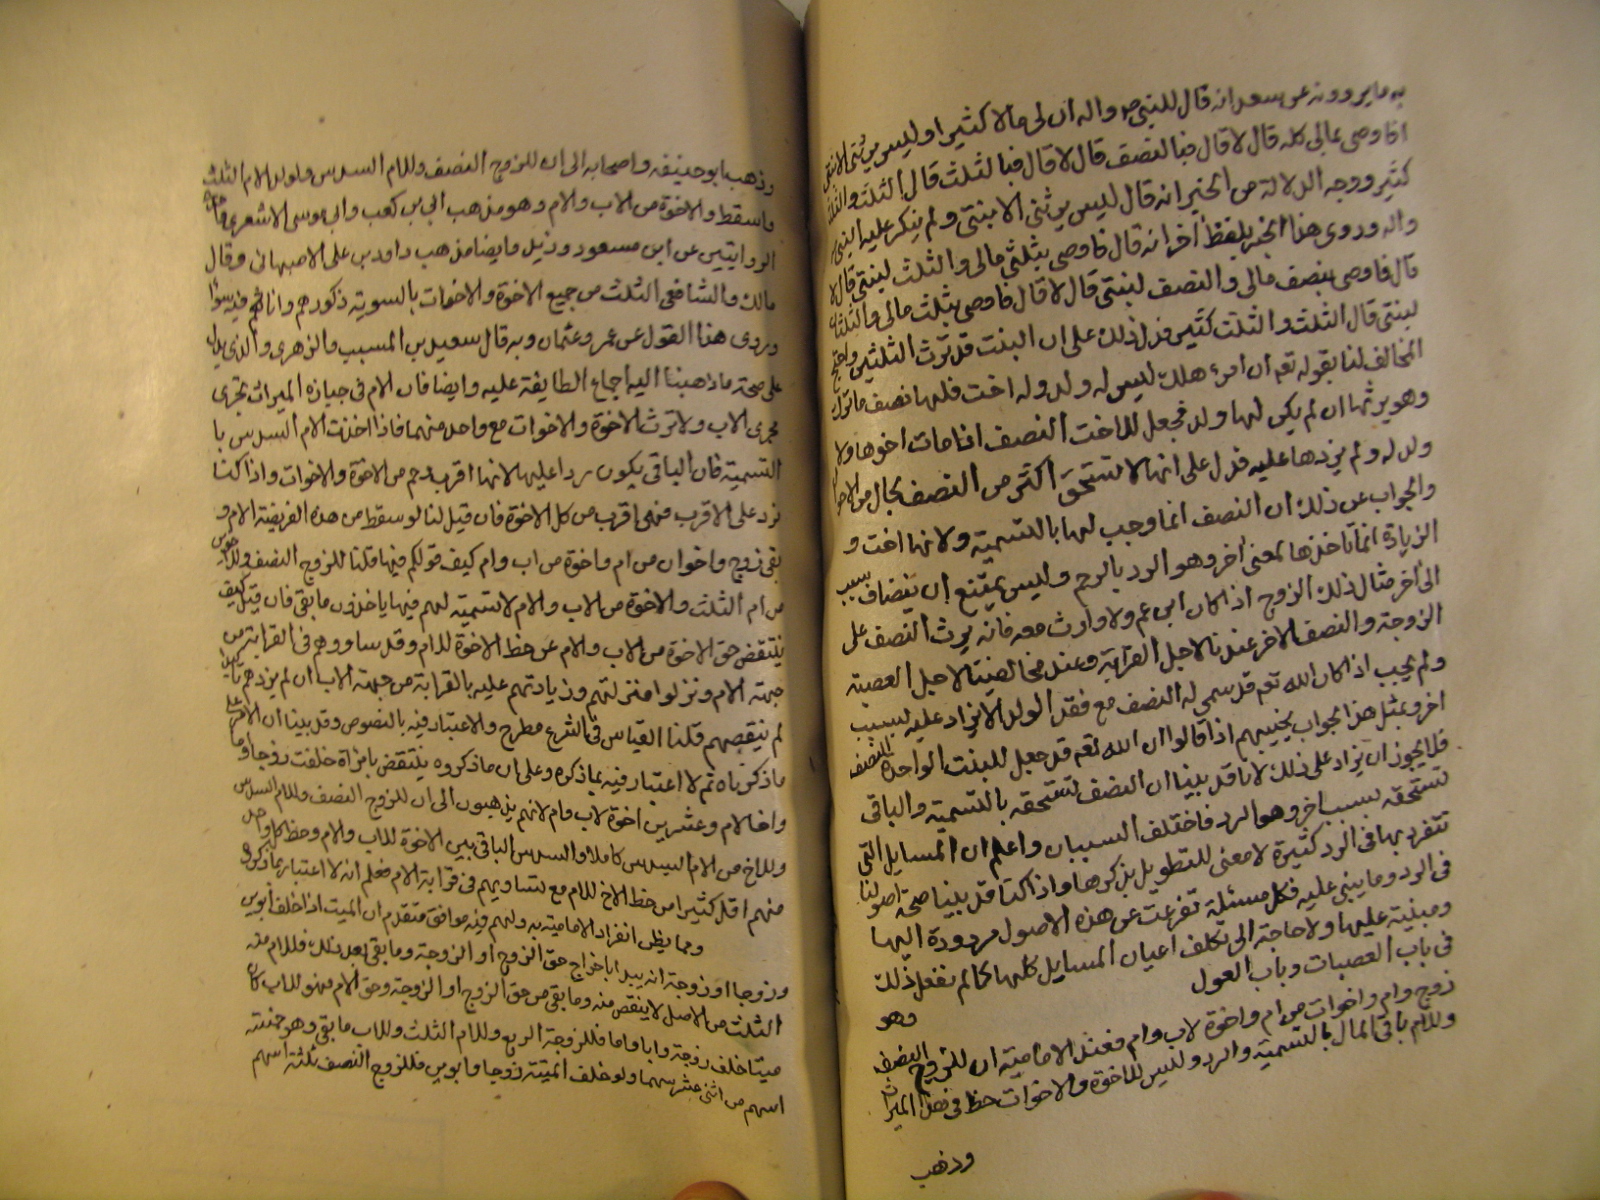 به ما يروونه عن سعد انه قال للنبي ص واله ان لى مالا كثيرا وليس يرثنى الا بنتى
افاوصى بمالى كله قال لا قال فبالنصف قال لا قال فبالثلث قال الثلث والثلث
كثير ووجه الدلالة من الخبر انه قال ليس يرثنى الا بنتى ولم ينكر عليه النبى
واله وروى هذا الخبر بلفظ اخر انه قال فاوصى بثلثى مالى والثلث لبنتى قال لا
قال فاوصى بنصف مالى والنصف لبنتى قال لا قال فاوصى بثلث مالى والثلثان
لبنتى قال الثلث والثلث كثير فدل ذلك على ان البنت قد ترث الثلثين واحتج
المخالف لنا بقوله تعم ان امرء هلك ليس له ولد وله اخت فلها نصف ما ترك
وهو يرثها ان لم يكن لها ولد فجعل للاخت النصف اذا مات اخوها ولا
ولد له ولم يزدها عليه فدل على انها لا تستحق اكثر من النصف بحال من الاحوال
والجواب عن ذلك ان النصف انما وجب لها بالتسمية ولانها اخت و
الزيادة انما تاخذها بمعنى اخر وهو الرد بالرحم وليس يمتنع ان ينضاف سبب
الى اخر مثال ذلك الزوج اذا كان ابن عم ولا وارث معه فانه يرث النصف على
الزوجة والنصف الاخر عندنا لاجل القرابة وعند مخالفينا لاجل العصبة
ولم يجب اذا كان الله تعم قد سمى له النصف مع فقد الولد الا يزاد عليه لسبب
اخر وبمثل هذا الجواب يجيبهم اذا قالوا ان الله تعم قد جعل للبنت الواحدة النصف
فلا يجوز ان يزاد على ذلك لانا قد بينا ان النصف تستحقه بالتسمية والباقى
تستحقه بسبب اخر وهو الرد فاختلف السببان واعلم ان المسايل التى
تتفرد بها فى الرد كثيرة لا معنى للتطويل بذكرها واذا كنا قد بينا صحة اصولنا
فى الرد وما يبنى عليه فكل مسئلة تفرعت عن هذه الاصول مردودة اليها
ومبنية عليها ولا حاجة الى تكلف اعيان المسايل كلها كما لم نفعل ذلك
فى باب العصبات وباب العول
وهو
زوج وام واخوات من ام واخوة لاب وام فعند الامامية ان للزوج النصف
وللام باقى المال بالتسمية والرد وليس للاخوة والاخوات حظ فى هذا الميراث
وذهب
وذهب ابو حنيفه واصحابه الى ان للزوج النصف وللام السدس ولولد الام الثلث
واسقط والاخوة من الاب والام وهو مذهب ابى بن كعب وابى موسى الاشعرى واحدى
الروايتين عن ابن مسعود وزيد وايضا مذهب داود بن على الاصبهانى وقال
مالك والشافعى الثلث من جميع الاخوة والاخوات بالسوية ذكورهم واناثهم فيه سواء
وروى هذا القول عن عمر وعثمان وبه قال سعيد بن المسيب والزهرى والذى يدل
على صحة ما ذهبنا اليه اجماع الطايفة عليه وايضا فان الام فى حيازه الميراث تجرى
مجرى الاب ولا ترث الاخوة والاخوات مع واحد منهما فاذا اخذت الام السدس با
التسمية فان الباقى يكون ردا عليها لانها اقرب رحم من الاخوة والاخوات واذا كنا
نرد على الاقرب فهى اقرب من كل الاخوة فان قيل لنا لو سقط من هذه الفريضة الام و
بقى زوج واخوان من ام واخوة من اب وام كيف قولكم فيها قلنا للزوج النصف وللاخوين
من ام الثلث والاخوة من الاب والام لا تسمية لهم فيها ياخذون ما بقى فان قيل كيف
ينتقض حق الاخوة من الاب والام عن حظ الاخوة للام وقد ساووهم فى القرابة من
جهة الام ونزلوا منزلتهم وزيادتهم عليه بالقرابة من جهة الاب ان لم يزدهم تاكيدا
لم ينقصهم قلنا القياس فى الشرع مطرح والاعتبار فيه بالنصوص وقد بينا ان الامر على
ما ذكرناه ثم لا اعتبار فيه بما ذكره وعلى ان ماذكروه ينتقض بامراة خلفت زوجا واما
واخا لام وعشرين اخوة لاب وام لانهم يذهبون الى ان للزوج النصف وللام السدس
وللاخ من الام السدس كاملا والسدس الباقى بين الاخوة للاب والام وحظ كل واحد
منهم اقل كثيرا من حظ الاخ للام مع تساويهم فى قرابة الام فعلم انه لا اعتبار بما ذكروه
ومما يظن انفراد الامامية به ولهم فيه موافق متقدم ان الميت اذا خلف ابوين
وزوجا او زوجة انه يبدا باخراج حق الزوج او الزوجة وما بقى بعد ذلك فللام منه
الثلث من الاصل لا ينقص منه وما بقى من حق الزوج او الزوجة وحق الام فهو للاب كان
ميتا خلف زوجة وابا واما فللزوجة الربع وللام الثلث وللاب ما بقى وهو خمسة
اسهم من اثنى عشر سهما ولو خلف الميتة زوجا وابوين فللزوج النصف ثلثة اسهم